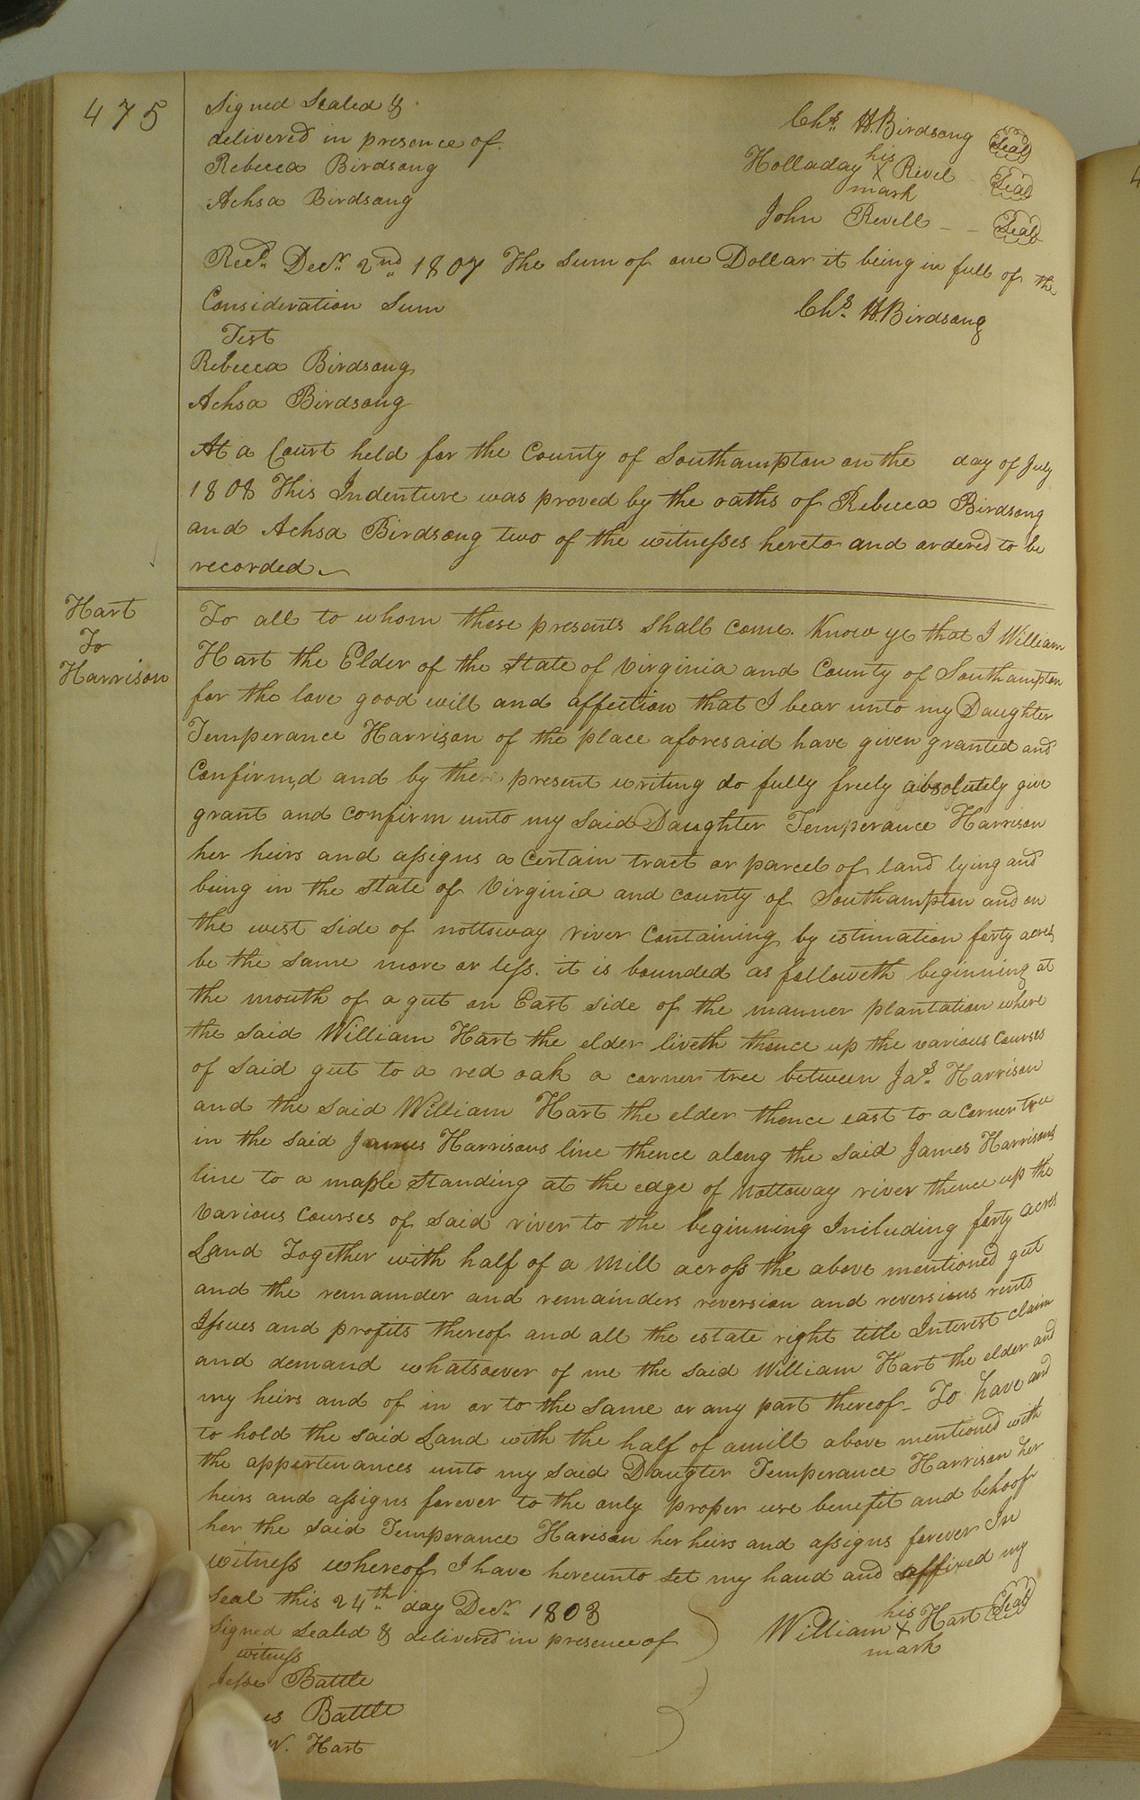 475
Signed Sealed &
delivered in presence of
Rebecca Birdsong
Achsa Birdsong
Chs. H. Birdsong Seal
Holladay his X mark Revel Seal
John Revell Seal
Recd. Decr. 2nd 1807 The Sum of one Dollar it being in full of the
Consideration Sum
Chs. H. Birdsong
Test
Rebecca Birdsong
Achsa Birdsong
At a Court held for the County of Southampton on the day of July
1808 This Indenture was proved by the oaths of Rebecca Birdsong
and Achsa Birdsong two of the witnesses hereto and ordered to be
recorded
Hart
To
Harrison
To all to whom these presents shall come. Know ye that I William
Hart the Elder of the State of Virginia and County of Southampton
for the love good will and affection that I bear unto my Daughter
Temperance Harrison of the place aforesaid have given granted and
Confirm,d and by these present writing do fully freely absolutely give
grant and confirm unto my said Daughter Temperance Harrison
her heirs and assigns a Certain tract or parcel of land lying and
being in the State of Virginia and county of Southampton and on
the west side of nottoway river Containing by estimation forty acres
be the same more or less. it is bounded as followeth beginning at
the mouth of a gut on East side of the manner plantation where
the said William Hart the elder liveth thence up the various Courses
of said gut to a red oak a corner tree between Jas. Harrison
and the said William Hart the elder thence east to a Corner tree
in the said James Harrisons line thence along the said James Harrisons
line to a maple Standing at the edge of Nottoway river thence up the
various Courses of said river to the beginning Including forty acres
Land Together with half of a Mill across the above mentioned gut
and the remainder and remainders reversion and reversions rents
Issues and profits thereof and all the estate right title Interest claim
and demand whatsoever of me the said William Hart the elder and
my heirs and of in or to the same or any part thereof. To have and
to hold the said Land with the half of amill above mentioned with
the appertenances unto my said Daugter Temperance Harrison her
heirs and assigns forever to the only proper use benefit and behoof
her the said Temperance Harison her heirs and assigns forever In
witness whereof I have hereunto set my hand and affixed my
Seal this 24th. day Decr. 1803
Signed Sealed & delivered in presence of
William his X mark Hart Seal
witness
Battle
Battle
W. Hart